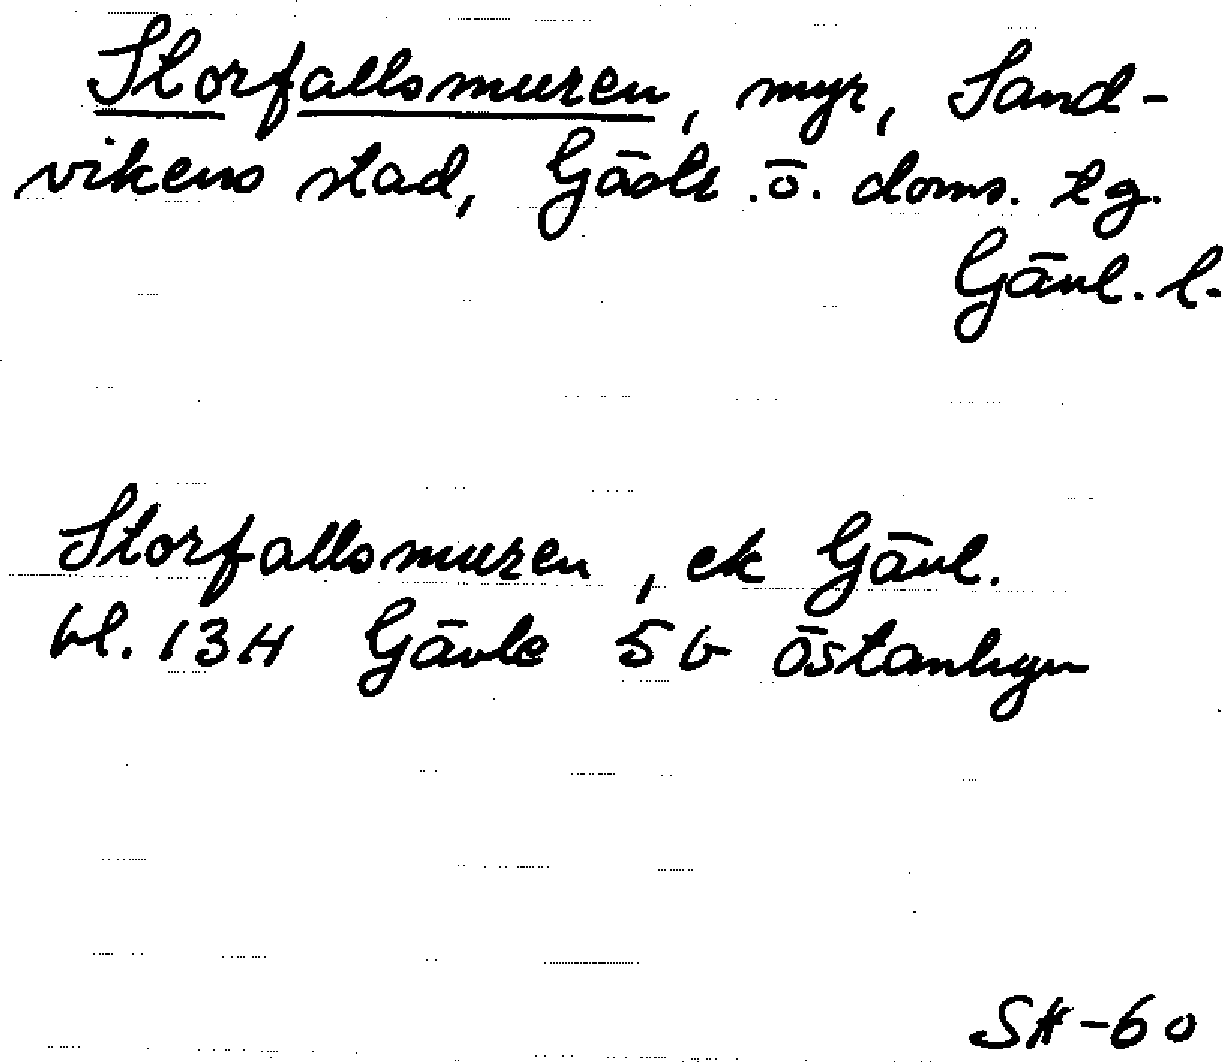 Storfallsmuren, myr, Sand-
vikens stad, Gästr. ö. doms. tg.
Gävl. l.
Storfallsmuren, ek Gävl.
bl. 13H Gävle 5b Östanbyn
SH-60